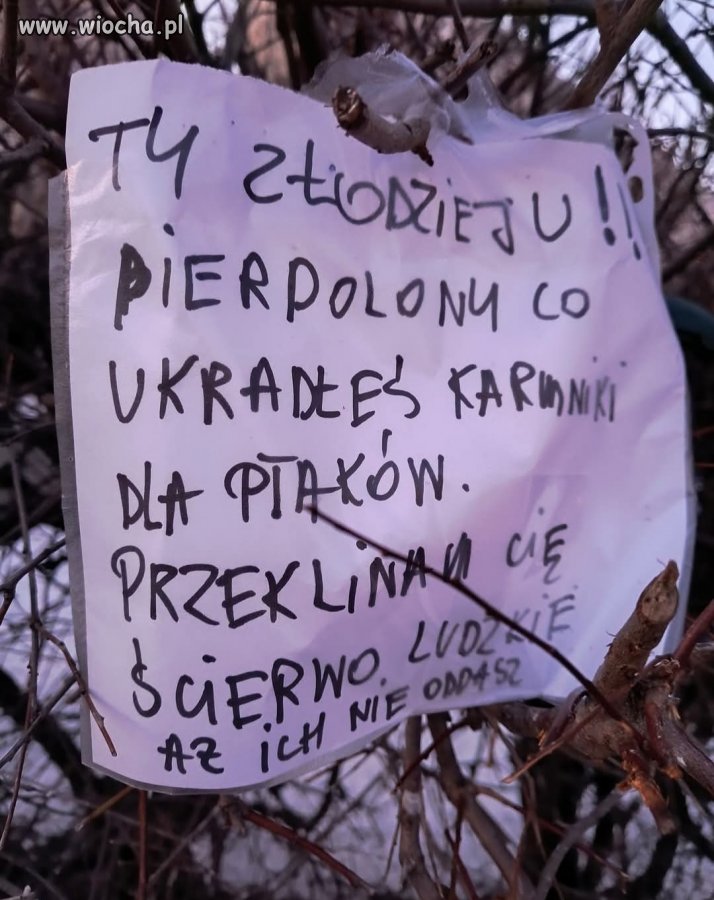 www.wiocha.pl
TY ZŁODZIEJU!!
PIERDOLONY CO
UKRADŁEŚ KARMNIKI
DLA PTAKÓW.
PRZEKLINAM CIĘ
ŚCIERWO LUDZKIE
AZ ICH NIE ODDASZ